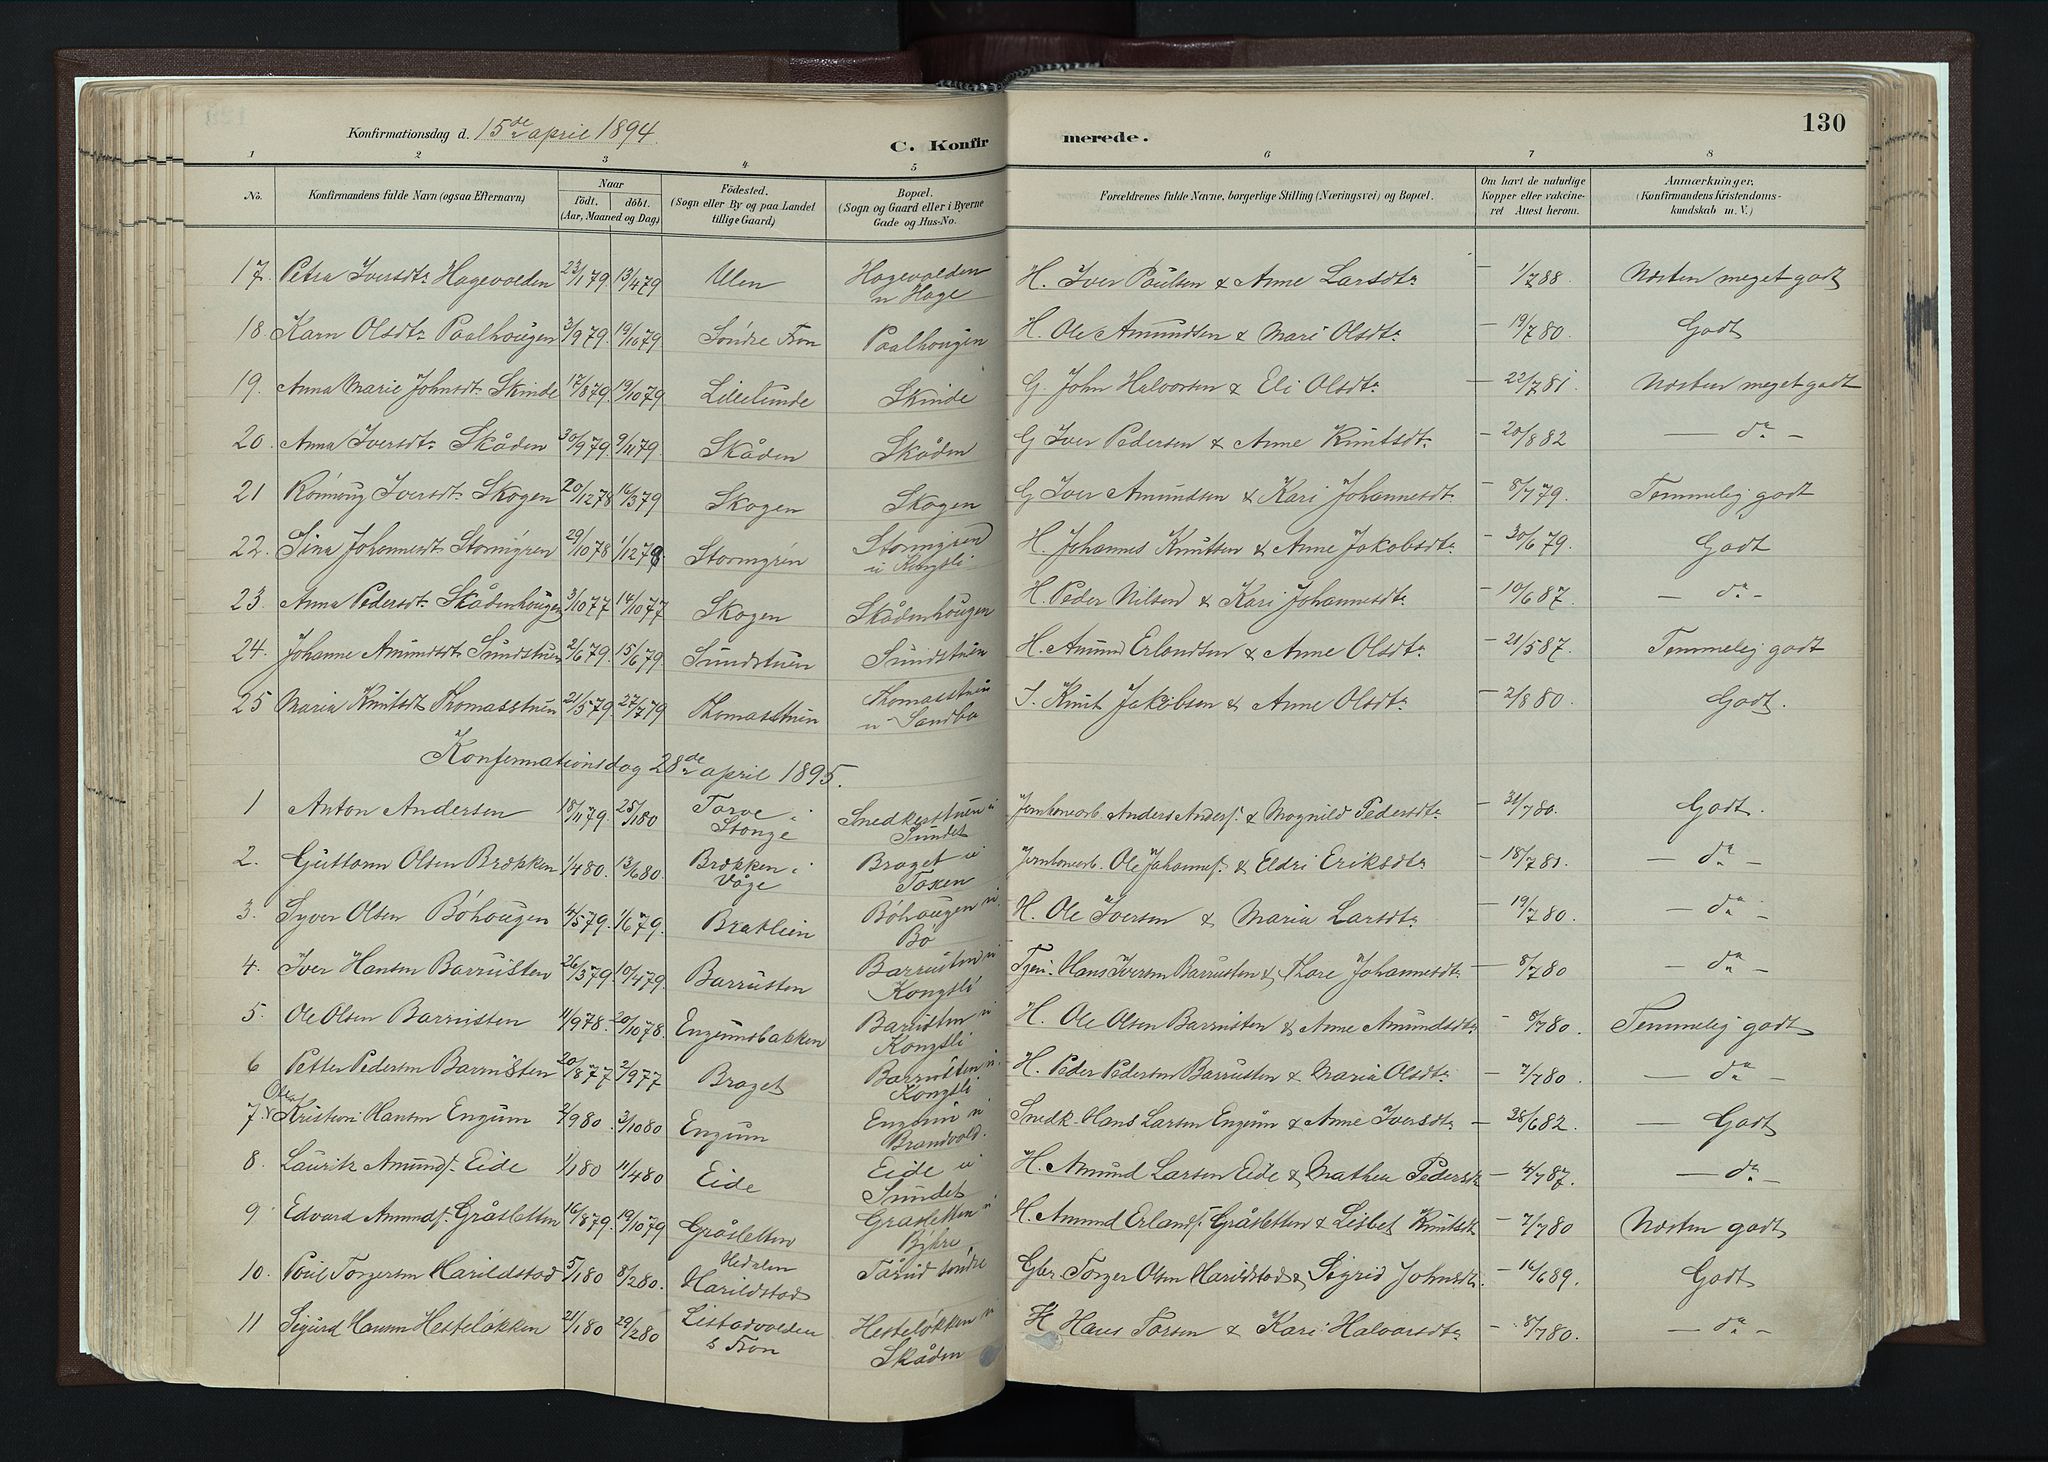 130
Konfirmationsdag d. 15de april 1894.
C. Konfirmerede.
1 2 3 4 5 6 7 8
No. Konfirmandens fulde Navn (ogsaa Efternavn) Naar födt. döbt. (Aar, Maaned og Dag) Födested. (Sogn eller By og paa Landet tillige Gaard) Bopæl. (Sogn og Gaard eller i Byerne Gade og Hus-No. Forældrenes fulde Navne, borgerlige Stilling (Næringsvei) og Bopæl. Om havt de naturlige Kopper eller vakcineret Attest herom. Anmærkninger. (Konfirmandens Kristendomskundskab m. V.)
17. Petra Iversdtr Hagevolden 23/1 79 13/4 79 Ulen Hagevolden u Hage H. Iver Poulsen & Anne Larsdtr — 1/7 88 Næsten meget godt
18. Karn Olsdtr Paalhougen 3/9 79. 19/10 79 Söndre Fron Paalhougen H. Ole Amundsen & Mari Olsdtr — 19/7 80. Godt
19. Anna Marie Johnsdt. Skinde 17/8 79. 19/10 79 Lillelunde Skinde G. John Halvorsen & Eli Olsdtr — 22/7 81. Næsten meget godt
20. Anna Iversdtr Skåden 30/9 79. 9/11 79 Skåden Skåden G Iver Pedersen & Anne Knutsdtr — 20/8 82 — do —
21 Rönnoug Iversdt. Skogen 20/12 78 16/3 79 Skogen Skogen G Iver Amundsen & Kari Johannesdtr — 8/7 79. Temmelig godt
22. Sina Johannesdt Stormgren 29/10 78 1/12 78 Stormgren Stormgren u Kongsli H. Johannes Knutsen & Anne Jakobsdtr — 30/6 79. Godt
23. Anna Pedersdt. Skådenhougen 3/10 77 14/10 77 Skogen Skådenhougen H. Peder Nilsen & Kari Johannesdtr — 10/6 87. — do —
24. Johanne Amundsdt Sundstuen 2/6 79. 15/6 79 Sundstuen Sundstuen H. Amund Erlandsen & Anne Olsdtr — 21/5 87. Temmelig godt
25 Maria Knutsdt Thomasstuen 21/5 79. 27/7 79 Thomasstuen Thomasstuen u Sandbo I. Knut Jakobsen & Anne Olsdtr — 2/8 80. Godt.
Konfermationsdag 28de april 1895.
1 Anton Andersen 18/11 79. 25/1 80 Torve i Stonge Snedkerstuen u Sundet Jernbanearb. Anders Anders. & Magnild Pedersdtr — 31/7 80. Godt.
2. Guttorm Olsen Brækken 1/4 80. 13/6 80. Brækken i Våge Braget u Toxen Jernbanearb. Ole Johannes. & Eldri Eriksdtr — 18/7 81. — do —
3. Syver Olsen Böhougen 4/5 79. 1/6 79. Bratlien Böhougen u. Bö H. Ole Iversen & Maria Larsdtr — 19/7 80. — do —
4. Iver Hansen Barrusten 26/3 79. 10/4 79. Barrusten Barrusten u Kongsli Hans Iversen Barrusten & Thore Johannesdtr — 8/7 80 — do —
5. Ole Olsen Barrusten 11/9 78. 20/10 78. Engumsbakken Barrusten u Kongsli H. Ole Olsen Barrusten & Anne Amundsdtr — 8/7 80. Temmelig godt
6 Petter Pedersen Barrusten 20/8 77 2/9 77 Braget Barrusten u. Kongsli H. Peder Pedersen Barrusten & Maria Olsdtr — 7/7 80. — do —
7. Kristian Hansen Engum 2/9 80. 3/10 80 Engum Engum u Brandvold. Snedk. Hans Larsen Engum & Anne Iversdtr — 28/6 82. — Godt
8. Lauritz Amunds. Eide 1/1 80 11/4 80 Eide Eide u Sundet H. Amund Larsen Eide & Mathea Pedersdt — 4/7 87. — do —
9. Edvard Amunds. Gråsletten 16/8 79. 19/10 79 Gråsletten Gråsletten u Bjkre H. Amund Erlands. Gråsletten & Lisbet Knutsdt — 7/7 80 Næsten godt
10. Poul Torgersen Harildstad 5/1 80 8/2 80. Hedalen Harildstad Tårud söndre Gbr. Torger Olsen Harildstad & Sigrid Johnsdt. — 16/6 89. Godt
11 Sigurd Hansen Hesteløkken 21/1 80 29/2 80 Listadvolden s Fron Hesteløkken u Skåden H Hans Torsen & Kari Halvorsdtr — 8/7 80. — do —